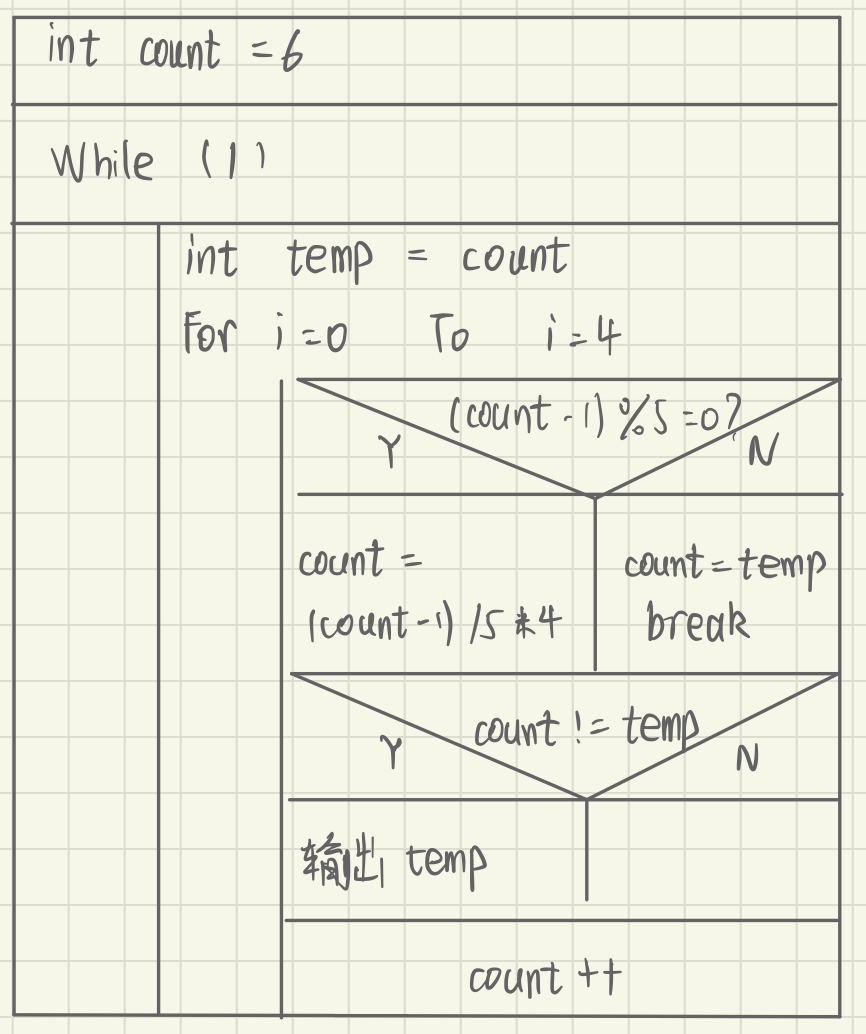 int count = 6
While (1)
int temp = count
For i = 0 To i = 4
(count - 1) % 5 = 0?
Y N
count =
(count - 1) / 5 * 4
count = temp
break
count != temp
Y N
输出 temp
count ++